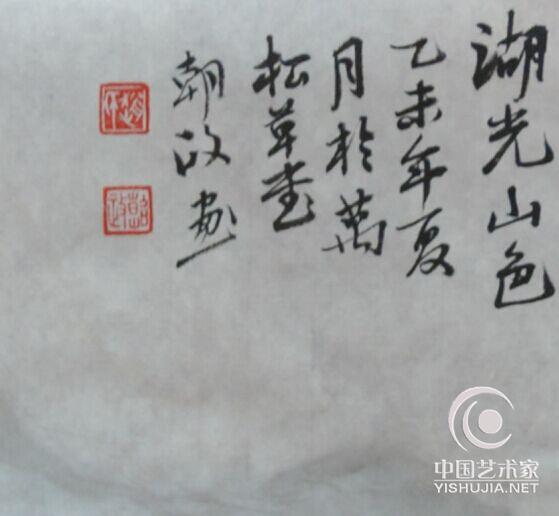 湖光山色
乙未年夏
月於萬
松草堂
朝政画
中国艺术家
YISHUJIA.NET